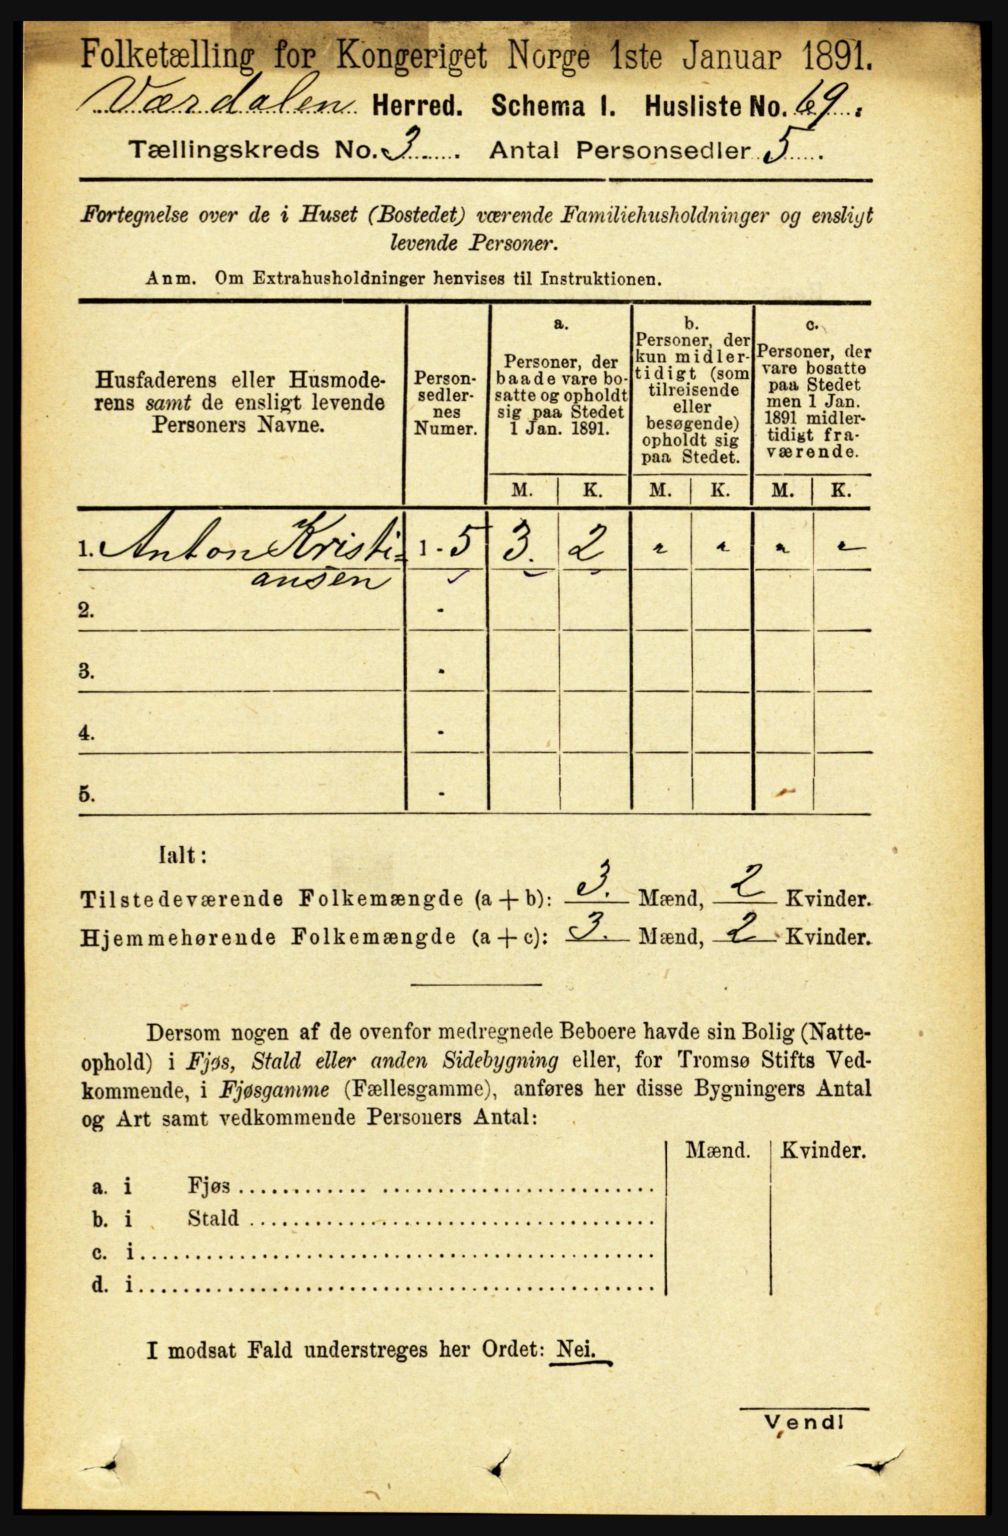 Folketælling for Kongeriget Norge 1ste Januar 1891.
Værdalen Herred. Schema I. Husliste No. 69.
Tællingskreds No. 3. Antal Personsedler 5.
Fortegnelse over de i Huset (Bostedet) værende Familiehusholdninger og ensligt
levende Personer.
Anm. Om Extrahusholdninger henvises til Instruktionen.
Husfaderens eller Husmode-
rens samt de ensligt levende
Personers Navne.
Person-
sedler-
nes
Numer.
a.
Personer, der
baade vare bo-
satte og opholdt
sig paa Stedet
1 Jan. 1891.
b.
Personer, der
kun midler-
tidigt (som
tilreisende
eller
besøgende)
opholdt sig
paa Stedet.
c.
Personer, der
vare bosatte
paa Stedet
men 1 Jan.
1891 midler-
tidigt fra-
værende.
M. K. M. K. M. K.
1. Anton Kristi= 1 - 5 3. 2 " " " "
ansen
2. -
3. -
4. -
5. -
Ialt:
Tilstedeværende Folkemængde (a + b): 3. Mænd, 2 Kvinder.
Hjemmehørende Folkemængde (a + c): 3. Mænd, 2 Kvinder.
Dersom nogen af de ovenfor medregnede Beboere havde sin Bolig (Natte-
ophold) i Fjøs, Stald eller anden Sidebygning eller, for Tromsø Stifts Ved-
kommende, i Fjøsgamme (Fællesgamme), anføres her disse Bygningers Antal
og Art samt vedkommende Personers Antal:
Mænd. Kvinder.
a. i Fjøs
b. i Stald
c. i
d. i
I modsat Fald understreges her Ordet: Nei.
Vend!